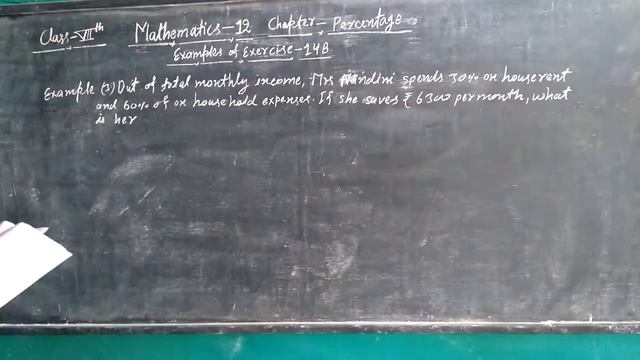 Class-VIIth Mathematics-12 Chapter- Percentage
Examples of Exercise-14B
Example (3) Out of total monthly income, Mrs Nandini spends 30% on house rent
and 60% of on household expenses. If she saves ₹ 6300 per month, what
is her